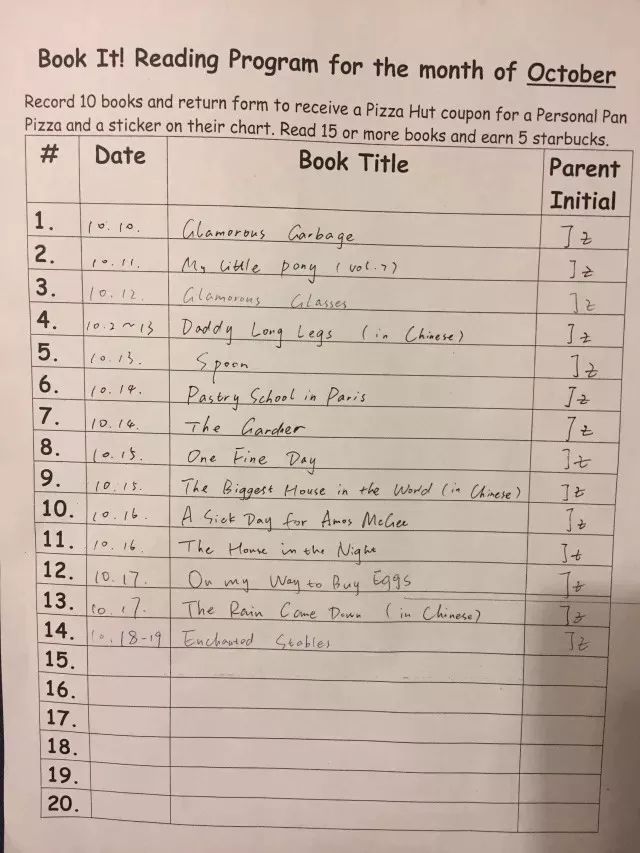 Book It! Reading Program for the month of October
Record 10 books and return form to receive a Pizza Hut coupon for a Personal Pan
Pizza and a sticker on their chart. Read 15 or more books and earn 5 starbucks.
# Date Book Title Parent Initial
1. 10.10. Glamorous Garbage Jz
2. 10.11. My little pony (vol.7) Jz
3. 10.12. Glamorous Glasses Jz
4. 10.2~13 Daddy Long Legs (in Chinese) Jz
5. 10.13. Spoon Jz
6. 10.14. Pastry School in Paris Jz
7. 10.14. The Gardner Jz
8. 10.15. One Fine Day Jz
9. 10.15. The Biggest House in the World (in Chinese) Jz
10. 10.16. A Sick Day for Amos McGee Jz
11. 10.16. The House in the Night Jz
12. 10.17. On my Way to Buy Eggs Jz
13. 10.17. The Rain Came Down (in Chinese) Jz
14. 10.18-19 Enchanted Stables Jz
15.
16.
17.
18.
19.
20.